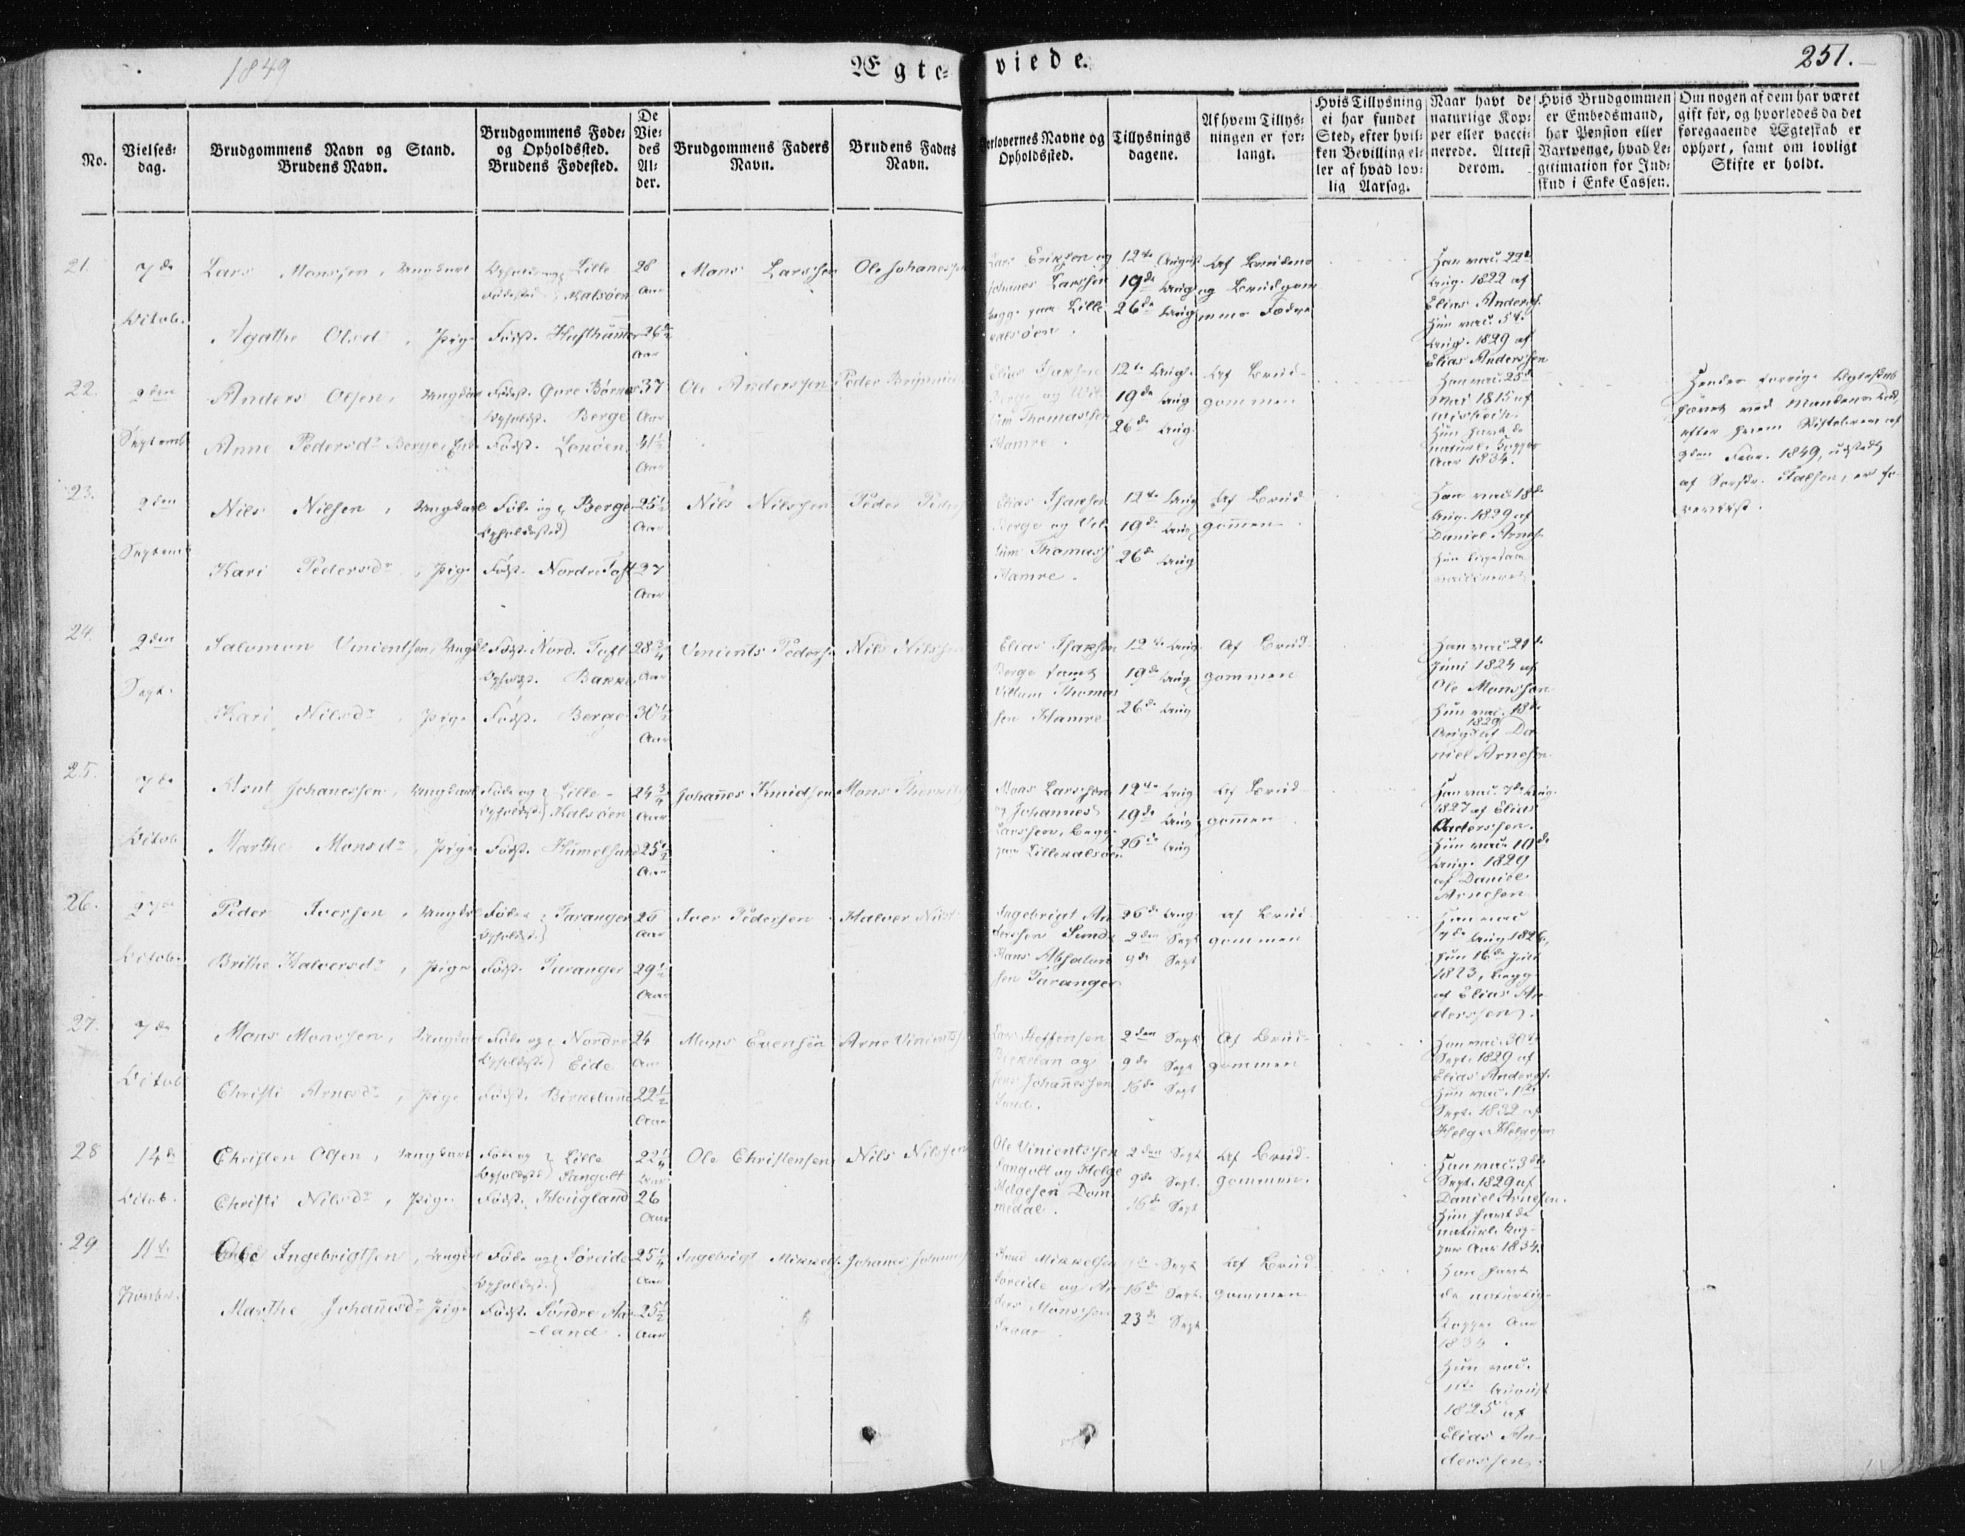 1849
Ægte-
viede.
251.
No.
Vielses-
dag.
Brudgommens Navn og Stand.
Brudens Navn.
Brudgommens Føde-
og Opholdssted.
Brudens Fødested.
De
Vie-
des
Al-
der.
Brudgommens Faders
Navn.
Brudens Faders
Navn.
Forlovernes Navne og
Opholdssted.
Tillysnings
dagene.
Af hvem Tillys-
ningen er for-
langt.
Hvis Tillysning
ei har fundet
Sted, efter hvil-
ken Bevilling el-
ler af hvad lov-
lig Aarsag.
Naar havt de
naturlige Kop-
per eller vacci-
nerede. Attest
derom.
Hvis Brudgommen
er Embedsmand,
har Pension eller
Vartpenge, hvad Le-
gitimation for Ind-
skud i Enke Cassen.
Om nogen af dem har været
gift før, og hvorledes da det
foregaaende Ægteskab er
ophørt, samt om lovligt
Skifte er holdt.
21.
7de
Octob.
Lars Monssen, Ungkarl
Agathe Olsd, Pige
Lille
Kalsøen
Født. Hufthammer
28
Aar
26
Aar
Mons Larssen
Ole Johanessen
Lars Eriksen og
Johanes Larssen
begge paa Lille
Kalsøen.
12te August
19de Aug
26de Aug
Af Brudens
og Brudgom
mens Fædre
Han vac. 22de
Aug. 1822 af
Elias Anders.
Hun vac. 5te
Aug. 1829 af
Elias Anderssen
22.
9den
Septemb
Anders Olsen, Ungkarl
Anne Pedersdr Berge, Enke
Født. Øvre Børnes
Opholdst. Berge
Født. Lønøen
37
Aar
41½
Aar
Ole Anderssen
Peder
Elias Isaksen
Berge og Wil-
lum Thomassen
Hamre.
12te Aug.
19de Aug
26de Aug.
Af Brud-
gommen
Han vac. 25de
Mai 1815 af
Hun havt de
naturl. Kopper
Aar 1834.
Hendes forrige Ægteskab
hævet ved Mandens Død,
efter hvem Skiftebrev af
9den Febr. 1849, udstedt
af Sorskr. Falsen, er fo-
reviist.
23.
9den
Septemb
Nils Nilsen, Ungkarl
Kari Pedersdr, Pige
Føde og Berge
Opholdssted
Født. Nordre Toft
25½
Aar
27
Aar
Nils Nilssen
Peder Peders
Elias Isaksen
Berge og Vil-
lum Thomass
Hamre.
12te Aug
19de Aug
26de Aug
Af Brud
gommen.
Han vac. 18de
Aug. 1829 af
Daniel Arnes.
Hun ligesaa
vaccineret
24.
9den
Sept.
Salomon Vincentsen, Ungkl
Kari Nilsdr, Pige
Født. Nord. Toft
Opholdst. Bakke
Født. Berge
28¾
Aar
30½
Aar
Vincents Peders
Nils Nilssen
Elias Isaksen
Berge samt
Villum Thomas
sen Hamre
12te Aug
19de Aug
26de Aug
Af Brud-
gommen
Han vac. 21de
Juni 1824 af
Ole Monssen
Hun vac. 18de
1829
Aug af Da
niel Arnesen
25.
7de
Octob
Knut Johanessen, Ungkarl
Marthe Monsdr, Pige
Føde og Lille-
Opholdst. Kalsøen
Født. Humelsund
24¾
Aar
25½
Aar
Johanes Knudsen
Mons
Mons Larssen
og Johannes
Larssen, begge
paa Lillekalsøen
12te Aug
19de Aug
26de Aug
Af Brud-
gommen
Han vac. 7de Aug.
1827 af Elias
Anderssen.
Hun vac. 19de
Aug. 1829
af Daniel
Arnesen
26.
27de
Octob.
Peder Iversen, Ungkarl
Brithe Halversdr, Pige
Føde og Taranger
Opholdst.
Født. Taranger
26
Aar
29½
Aar
Iver Pedersen
Halver Nils
Ingebrigt An
derssen Sund
Hans Absalon
sen Taranger
26de Aug
2den Sept
9de Sept
Af Brud-
gommen
Han vac
7de Aug 1826,
Hun 16de Juli
1823, begge
af Elias An
derssen.
27.
7de
Octob
Mons Monssen, Ungkarl
Christi Arnesdr, Pige
Føde og Nordre
Opholdst. Eide
Født. Birkeland
24
Aar
22½
Aar
Mons Evensen
Arne Vincents
Lars Steffensen
Birkelan og
Johanessen
Sund.
2den Sept
9de Sept
16de Sept
Af Brud-
gommen
Han vac. 30te
Sept. 1829 af
Elias Anders.
Hun vac. 1ste
Sept. 1832 af
Helge Helgesen
28
14de
Octob.
Christen Olsen, Ungkarl
Christi Nilsdr, Pige
Føde og Lille
Opholdst. Fangolt
Født. Hougland
22¼
Aar
26
Aar
Ole Christensen
Nils Nilssen
Ole Vincentssen
Fangolt og Helge
Helgesen Dom
medal.
2den Sept
9de Sept.
16de Sept
Af Brud-
gommen.
Han vac. 3de
Sept. 1829 af
Daniel Arnesen.
Hun havt de
naturl. Kop-
per Aar 1834.
29
11te
Novbr.
Ingebrigtsen, Ungkl
Marthe Johanesdr Pige
Føde og Søreide
Opholdst.
Født. Søndre Aar
-land.
25¼
Aar
25½
Aar
Ingebrigt Mikkels.
Johanes Johannes
Knud Mikkelsen
Søreide og An
ders Monssen
Sept
16de Sept.
23de Sept
Af Brud-
gommen
Han havt
de naturlige
Kopper Aar
1834.
Hun vac.
1ste August
1825 af
Elias An-
derssen.